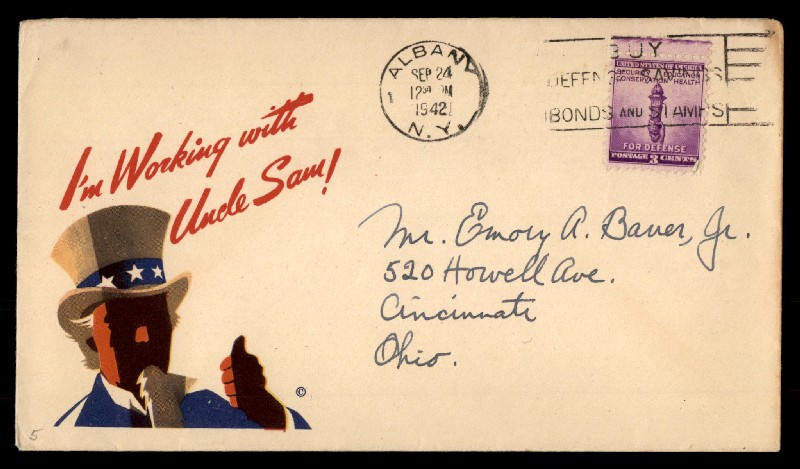 I'm Working with
Uncle Sam!
ALBANY
SEP 24
12 30 PM
1942
N.Y.
1
BUY
DEFENSE SAVINGS
BONDS AND STAMPS
UNITED STATES OF AMERICA
SECURITY EDUCATION
CONSERVATION HEALTH
FOR DEFENSE
POSTAGE 3 CENTS
Mr. Emory A. Bauer, Jr.
520 Howell Ave.
Cincinnati
Ohio.
©
5